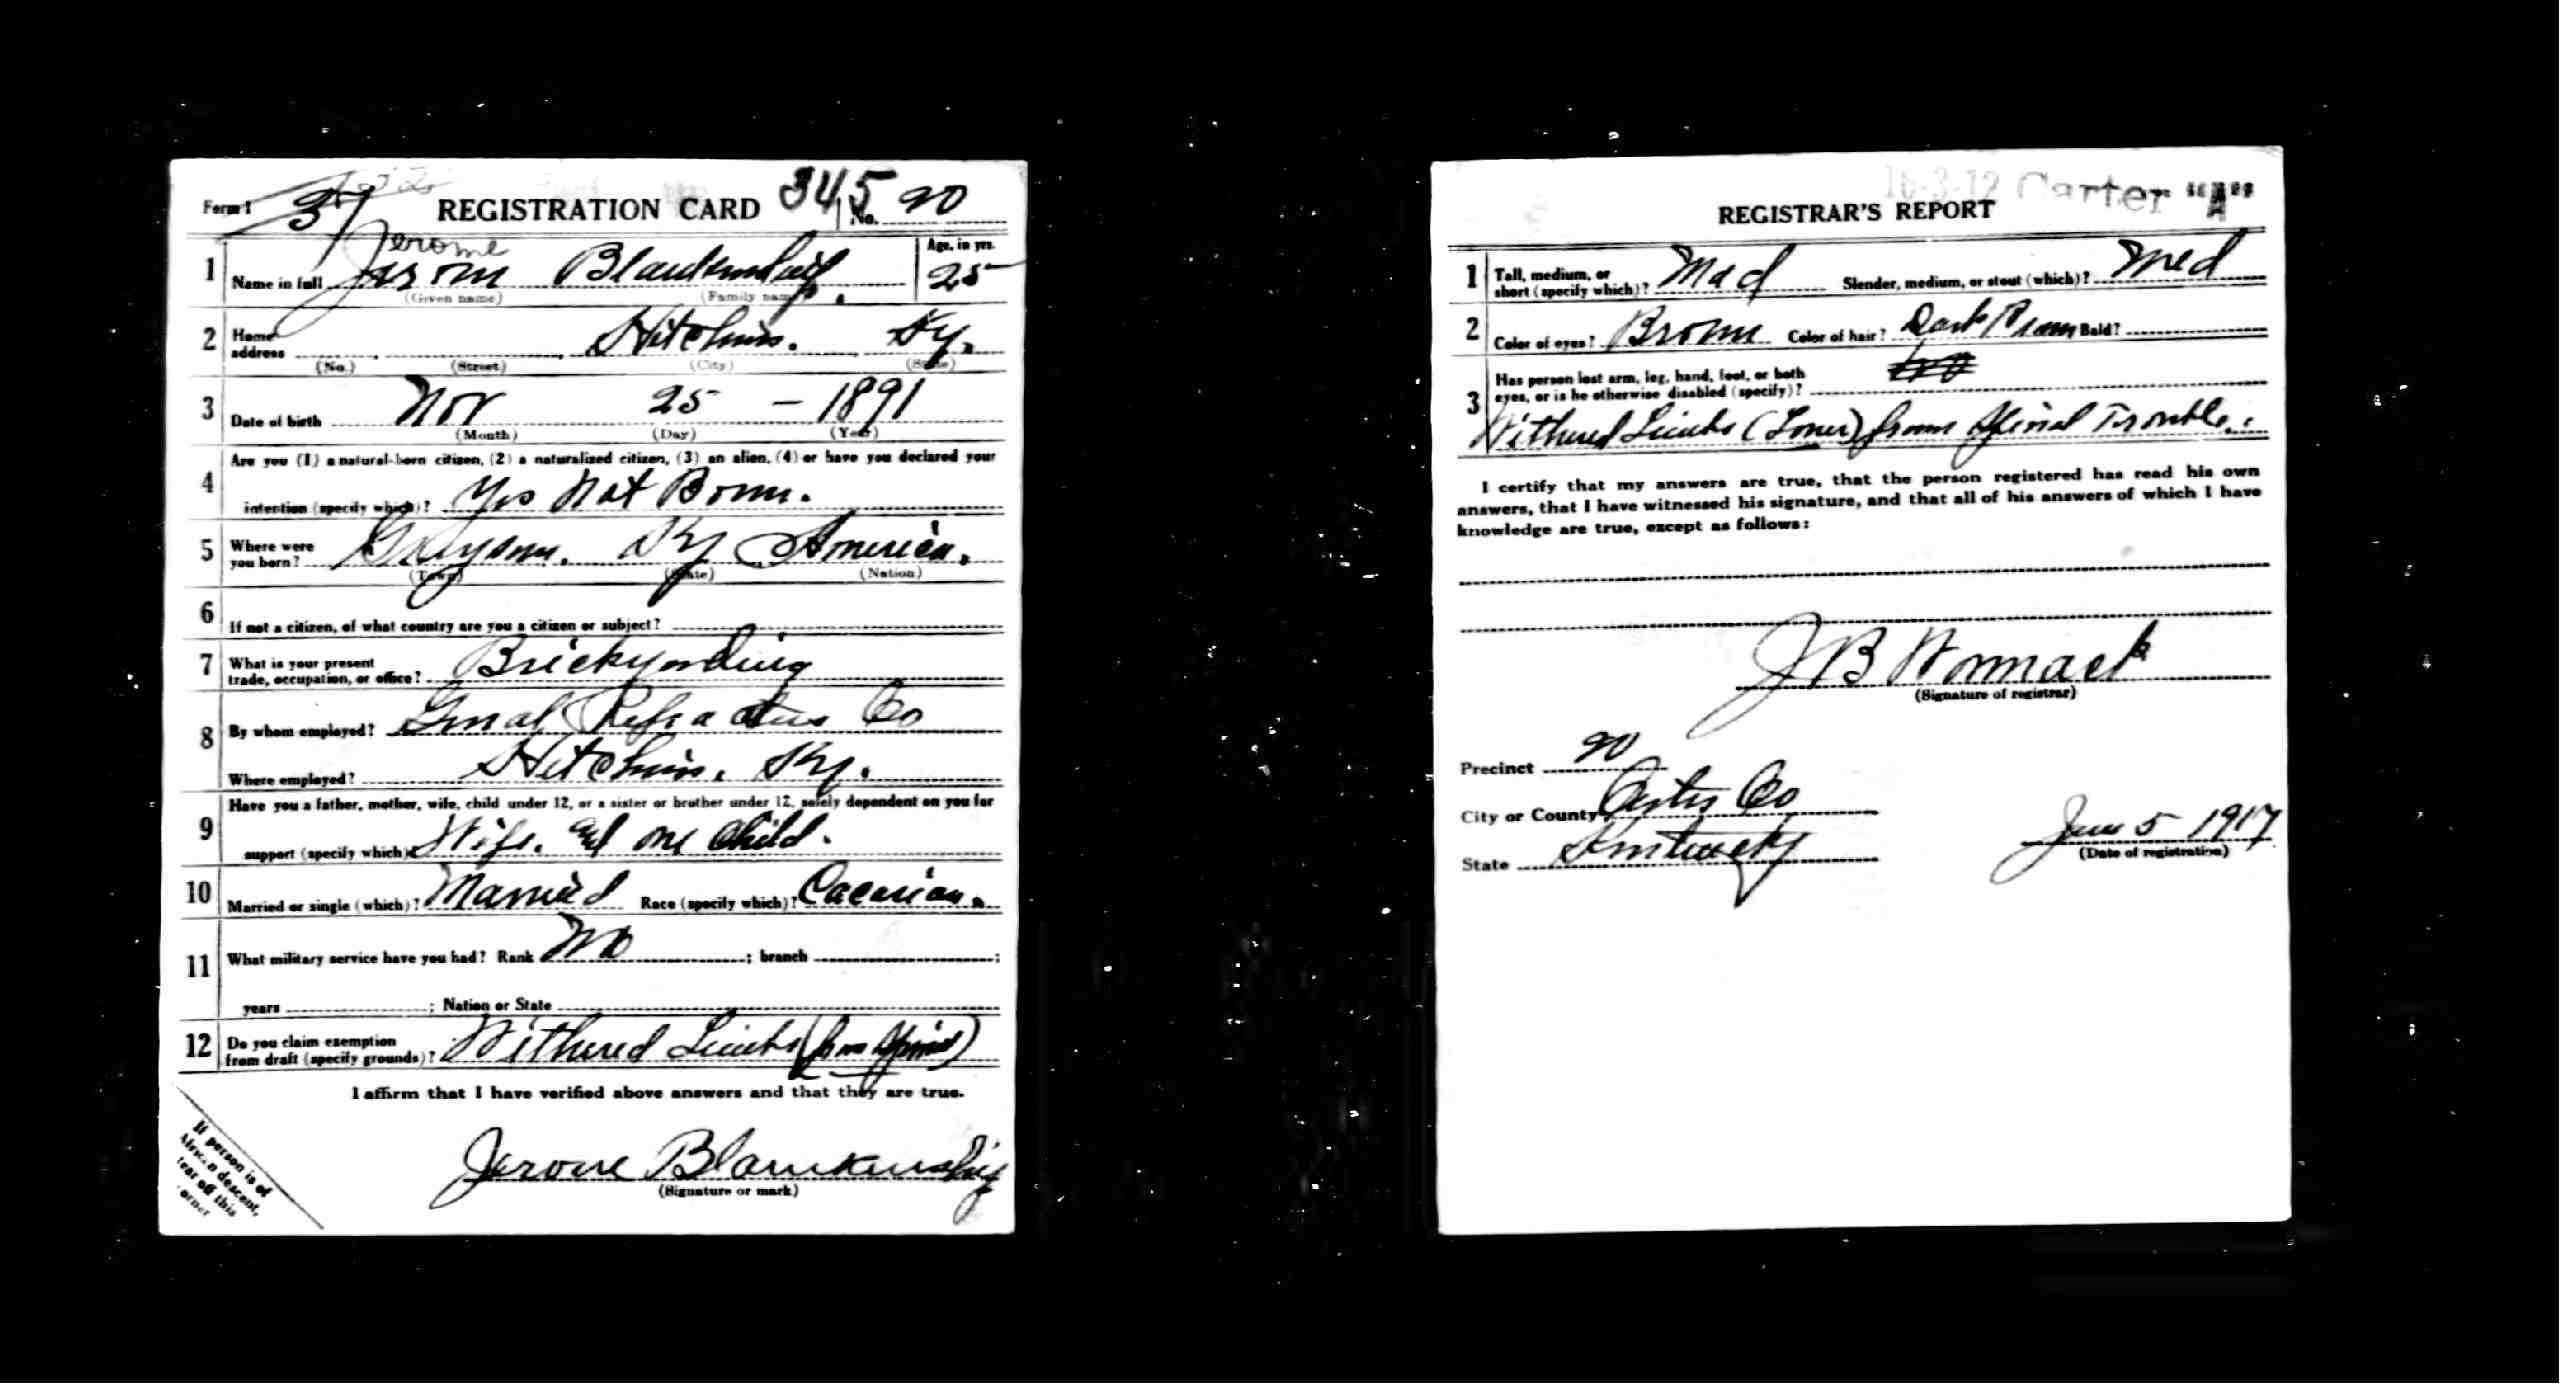 Form 1 37 REGISTRATION CARD 345 No. 20
Jerome
1 Name in full Jerom Blankenship Age, in yrs. 25
(Given name) (Family name)
2 Home address Hitchins. Ky.
(No.) (Street) (City) (State)
3 Date of birth Nov 25 - 1891
(Month) (Day) (Year)
Are you (1) a natural-born citizen, (2) a naturalized citizen, (3) an alien, (4) or have you declared your
4 intention (specify which)? Yes Nat Born.
5 Where were you born? Grayson. Ky America.
(Town) (State) (Nation)
6 If not a citizen, of what country are you a citizen or subject?
7 What is your present trade, occupation, or office? Brickyarding
8 By whom employed? Refractus Co
Where employed? Hitchins. Ky.
Have you a father, mother, wife, child under 12, or a sister or brother under 12, solely dependent on you for
9 support (specify which)? Wife. and one Child.
10 Married or single (which)? Married Race (specify which)? Cacasian.
11 What military service have you had? Rank No ; branch ;
years ; Nation or State
12 Do you claim exemption from draft (specify grounds)? Withered Limbs (from Spinal)
I affirm that I have verified above answers and that they are true.
Jerome Blankenship
(Signature or mark)
If person is of
African descent,
tear off this
corner
16-3-12 Carter "A"
REGISTRAR'S REPORT
1 Tall, medium, or short (specify which)? Med Slender, medium, or stout (which)? Med
2 Color of eyes? Brown Color of hair? Dark Brown Bald?
3 Has person lost arm, leg, hand, foot, or both
eyes, or is he otherwise disabled (specify)?
Withered Limbs (Lower) from Spinal Trouble.
I certify that my answers are true, that the person registered has read his own
answers, that I have witnessed his signature, and that all of his answers of which I have
knowledge are true, except as follows:
J B Womack
(Signature of registrar)
Precinct 20
City or County Carter Co
State Kentucky June 5 1917
(Date of registration)